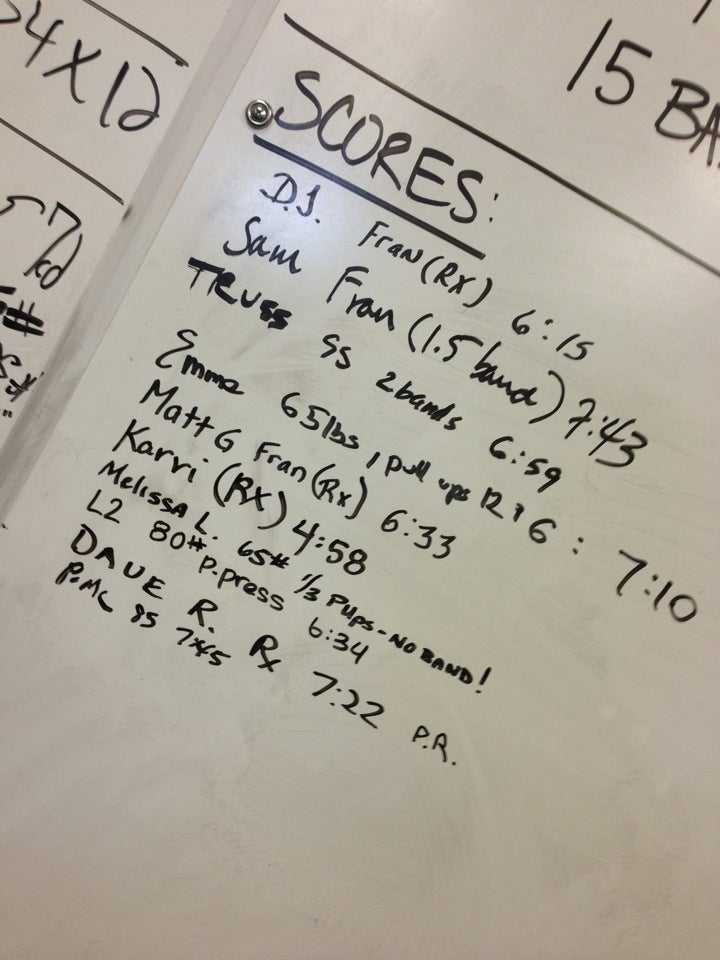 34X12
15 BA
SCORES:
D.J. Fran (RX) 6:15
Sam Fran (1.5 band) 7:43
TRUSS 95 2 bands 6:59
Emma 65lbs, pull ups 12 + 6 : 7:10
Matt G Fran (Rx) 6:33
Karvi (RX) 4:58
Melissa L. 65# 1/3 PUPS - NO BAND!
L2 80# P.press 6:34
DAVE R. Rx 7:22 P.R.
P.MC 85